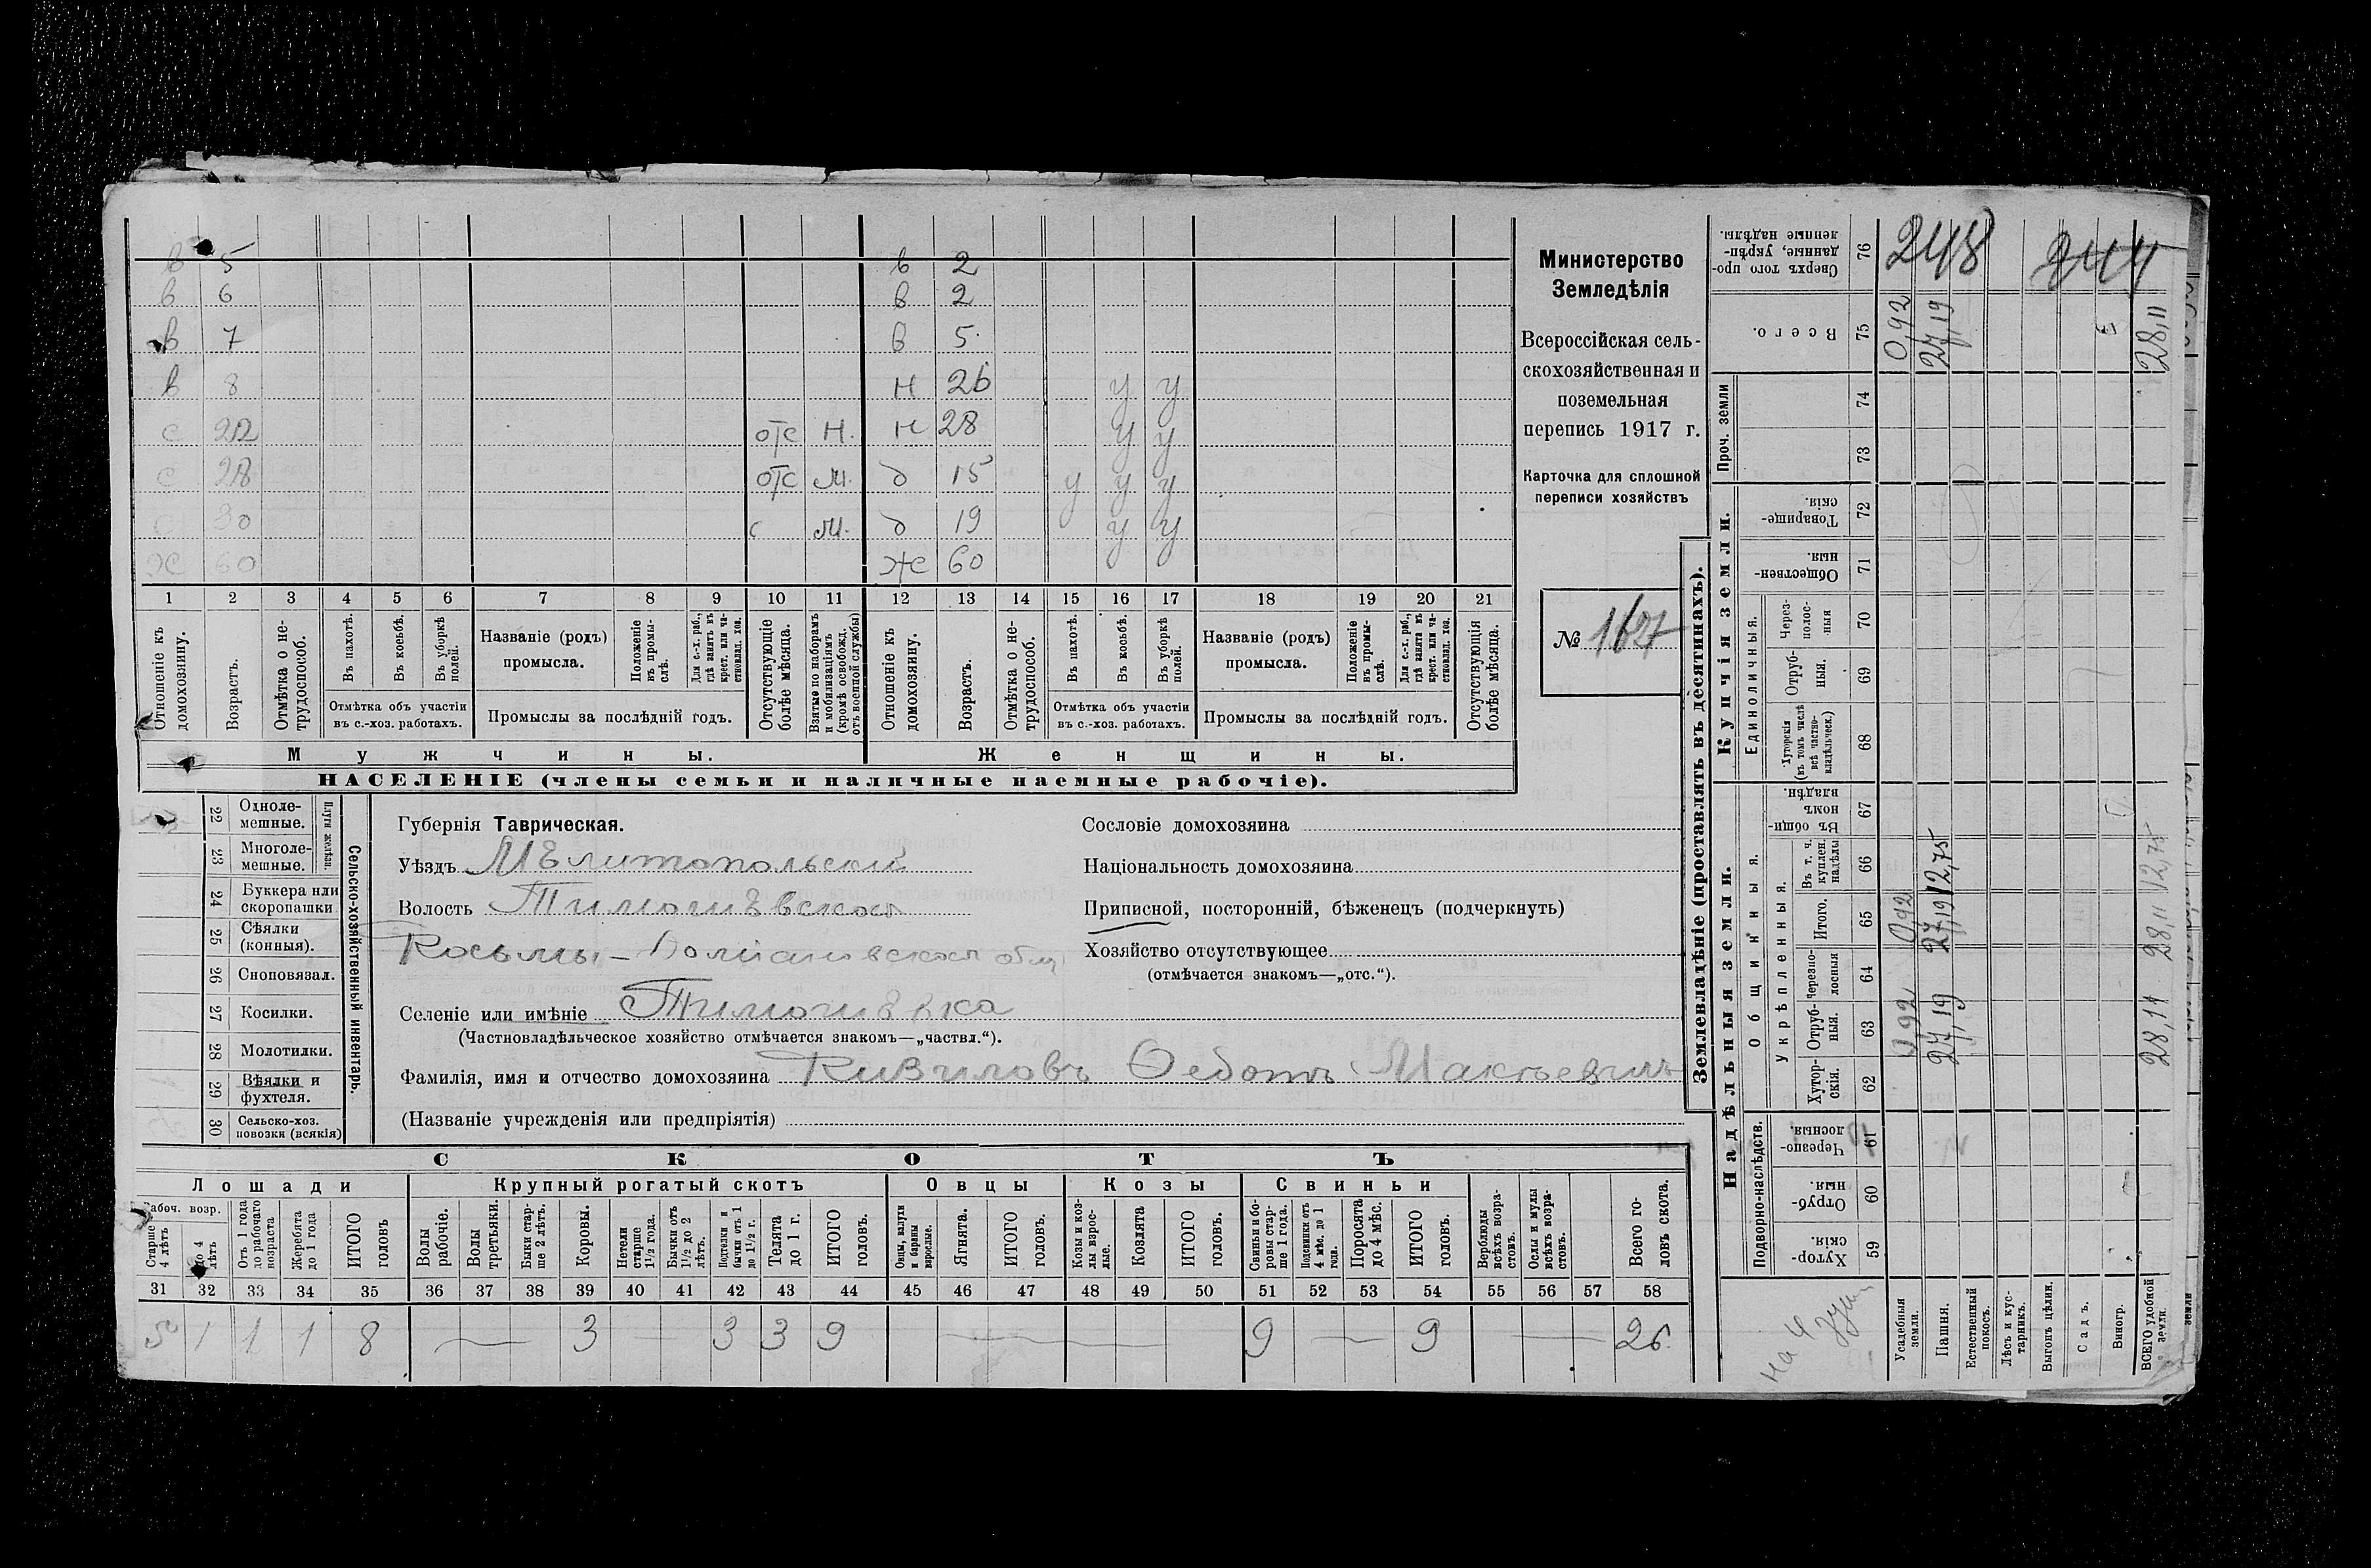 в 5 в 2
в 6 в 2
в 7 в 5
в 8 н 26 у у
с 22 отс н. н 28 у у
с 28 отс м. д 15 у у у
с 30 с м. д 19 у у
ж 60 ж 60
1 2 3 4 5 6 7 8 9 10 11 12 13 14 15 16 17 18 19 20 21
Отношеніе къ домохозяину.
Возрастъ.
Отмѣтка о не-трудоспособ.
Въ пахотѣ.
Въ косьбѣ.
Въ уборкѣ полей.
Отмѣтка объ участіи въ с.-хоз. работахъ.
Названіе (родъ) промысла.
Положеніе въ промы-слѣ.
Для с.-х. раб., гдѣ занятъ въ крест. или ча-стновлад. хоз.
Промыслы за послѣдній годъ.
Отсутствующіе болѣе мѣсяца.
Взятые по наборамъ и мобилизаціямъ (кромѣ освобожд. отъ военной службы)
Отношеніе къ домохозяину.
Возрастъ.
Отмѣтка о не-трудоспособ.
Въ пахотѣ.
Въ косьбѣ.
Въ уборкѣ полей.
Отмѣтка объ участіи въ с.-хоз. работахъ.
Названіе (родъ) промысла.
Положеніе въ промы-слѣ.
Для с.-х. раб., гдѣ занята въ крест. или ча-стновлад. хоз.
Промыслы за послѣдній годъ.
Отсутствующія болѣе мѣсяца.
Мужчины. Женщины.
НАСЕЛЕНІЕ (члены семьи и наличные наемные рабочіе).
Министерство
Земледѣлія
Всероссійская сель-
скохозяйственная и
поземельная
перепись 1917 г.
Карточка для сплошной
переписи хозяйствъ
№ 1627
22 Одноле-мешные.
23 Многоле-мешные.
Плуги желѣзн.
24 Буккера или скоропашки
25 Сѣялки (конныя).
26 Сноповязал.
27 Косилки.
28 Молотилки.
29 Вѣялки и фухтеля.
30 Сельско-хоз. повозки (всякія)
Сельско-хозяйственный инвентарь.
Губернія Таврическая.
Уѣздъ Мѣлитопольскій
Волость Тимошѣвская
Косьмы-Доміановская общ
Селеніе или имѣніе Тимошѣвка
(Частновладѣльческое хозяйство отмѣчается знакомъ—„частвл.“).
Фамилія, имя и отчество домохозяина Кизиловъ Федотъ
(Названіе учрежденія или предпріятія)
Сословіе домохозяина
Національность домохозяина
Приписной, посторонній, бѣженецъ (подчеркнуть)
Хозяйство отсутствующее
(отмѣчается знакомъ—„отс.“).
СКОТЪ
Лошади Крупный рогатый скотъ Овцы Козы Свиньи
Рабоч. возр.
Старше 4 лѣтъ
До 4 лѣтъ
Отъ 1 года до рабочаго возраста
Жеребята до 1 года
ИТОГО головъ
Волы рабочіе.
Волы третьяки.
Быки стар-ше 2 лѣтъ.
Коровы.
Нетели старше 1½ года.
Бычки отъ 1½ до 2 лѣтъ.
Подтелки и бычки отъ 1 до 1½ г.
Телята до 1 г.
ИТОГО головъ.
Овцы, валухи и бараны взрослые.
Ягнята.
ИТОГО головъ.
Козы и коз-лы взрос-лые.
Козлята
ИТОГО головъ.
Свиньи и бо-ровы стар-ше 1 года.
Подсвинки отъ 4 мѣс. до 1 года.
Поросята до 4 мѣс.
ИТОГО головъ.
Верблюды всѣхъ возра-стовъ.
Ослы и мулы всѣхъ возра-стовъ.
Всего го-ловъ скота.
31 32 33 34 35 36 37 38 39 40 41 42 43 44 45 46 47 48 49 50 51 52 53 54 55 56 57 58
5 1 1 1 8 — 3 — 3 3 9 — — 9 — 9 — 26
Землевладѣніе (проставлять въ десятинахъ).
Надѣльныя земли. Купчія земли. Проч. земли
Подворно-наслѣдств.
Общинныя.
Укрѣпленныя.
Единоличныя.
Сверхъ того про-данные, укрѣп-ленные надѣлы. 76 248 244
Всего. 75 0,92 27,19 28,11
74
73
Товарище-скія. 72
Обществен-ныя. 71
Через-полос-ныя 70
Отруб-ныя. 69
Хуторскія (въ томъ числѣ всѣ частно-владѣльческ.) 68
Въ общи-номъ владѣн. 67
Въ т. ч. куплен. надѣлы 66 12,75 12,75
Итого. 65 0,92 27,19 28,11
Черезпо-лосныя 64
Отруб-ныя. 63 0,92 27,19 28,11
Хутор-скія. 62
Черезпо-лосныя. 61
Отруб-ныя. 60
Хутор-скія. 59
на 4 души
Усадебныя земли.
Пашня.
Естественный покосъ.
Лѣсъ и кус-тарникъ.
Выгонъ цѣлин.
Садъ.
Виногр.
ВСЕГО удобной земли.